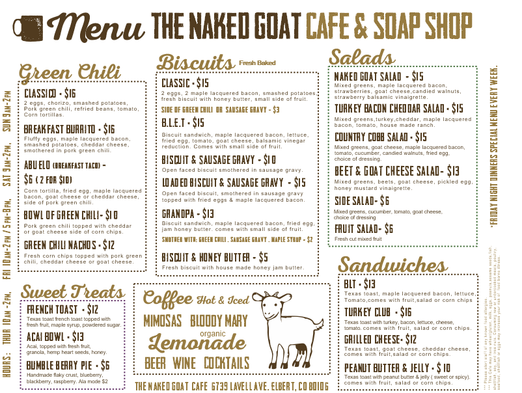 Menu THE NAKED GOAT CAFE & SOAP SHOP
Green Chili
CLASSICO - $16
2 eggs, chorizo, smashed potatoes,
Pork green chili, refried beans, tomato,
Corn tortillas.
BREAKFAST BURRITO - $16
Fluffy eggs, maple lacquered bacon,
smashed potatoes, cheddar cheese,
smothered in pork green chili.
ABUELO (BREAKFAST TACO) -
$6 (2 FOR $10)
Corn tortilla, fried egg, maple lacquered
bacon, goat cheese or cheddar cheese,
side of pork green chili.
BOWL OF GREEN CHILI- $10
Pork green chili topped with cheddar
or goat cheese or side of corn chips.
GREEN CHILI NACHOS - $12
Fresh corn chips topped with pork green
chili, cheddar cheese or goat cheese.
Biscuits Fresh Baked
CLASSIC - $15
2 eggs, 2 maple lacquered bacon, smashed potatoes,
fresh biscuit with honey butter, small side of fruit.
SIDE OF GREEN CHILI OR SAUSAGE GRAVY - $3
B.L.E.T - $15
Biscuit sandwich, maple lacquered bacon, lettuce,
fried egg, tomato, goat cheese, balsamic vinegar
reduction. Comes with small side of fruit.
BISCUIT & SAUSAGE GRAVY - $10
Open faced biscuit smothered in sausage gravy.
LOADED BISCUIT & SAUSAGE GRAVY - $15
Open faced biscuit smothered in sausage gravy
topped with fried eggs & maple lacquered bacon.
GRANDPA - $13
Biscuit sandwich, maple lacquered bacon, fried egg,
jam honey butter comes with small side of fruit.
SMOTHER WITH: GREEN CHILI, SAUSAGE GRAVY, MAPLE SYRUP - $2
BISCUIT & HONEY BUTTER - $5
Fresh biscuit with house made honey jam butter.
Salads
NAKED GOAT SALAD - $15
Mixed greens, maple lacquered bacon,
strawberries, goat cheese,candied walnuts,
strawberry balsamic vinaigrette.
TURKEY BACON CHEDDAR SALAD - $15
Mixed greens,turkey,cheddar, maple lacquered
bacon, tomato, house made ranch.
COUNTRY COBB SALAD - $15
Mixed greens, goat cheese, maple lacquered bacon,
tomato, cucumber, candied walnuts, fried egg,
choice of dressing.
BEET & GOAT CHEESE SALAD- $13
Mixed greens, beets, goat cheese, pickled egg,
honey mustard vinaigrette.
SIDE SALAD- $6
Mixed greens, cucumber, tomato, goat cheese,
choice of dressing
FRUIT SALAD- $6
Fresh cut mixed fruit
Sweet Treats
FRENCH TOAST - $12
Texas toast french toast topped with
fresh fruit, maple syrup, powdered sugar.
ACAI BOWL - $13
Acai, topped with fresh fruit,
granola, hemp heart seeds, honey.
BUMBLE BERRY PIE - $6
Handmade flaky crust, blueberry,
blackberry, raspberry. Ala mode $2
Coffee Hot & Iced
MIMOSAS BLOODY MARY
organic
Lemonade
BEER WINE COCKTAILS
THE NAKED GOAT CAFE 6735 LAVELL AVE. ELBERT, CO 80106
Sandwiches
BLT - $13
Texas toast, maple lacquered bacon, lettuce,
Tomato,comes with fruit,salad or corn chips
TURKEY CLUB - $16
Texas toast with turkey, bacon, lettuce, cheese,
tomato. comes with fruit, salad or corn chips.
GRILLED CHEESE- $12
Texas toast, goat cheese, cheddar cheese,
comes with fruit, salad or corn chips.
PEANUT BUTTER & JELLY - $10
Texas toast with peanut butter & jelly ( smashed ) comes
with fruit, salad or corn chips.
HOURS: THUR 10AM-2PM, FRI 10AM-2PM / 5PM-9PM, SAT 9AM-2PM, SUN 9AM-2PM
*FRIDAY NIGHT DINNERS SPECIAL MENU EVERY WEEK.